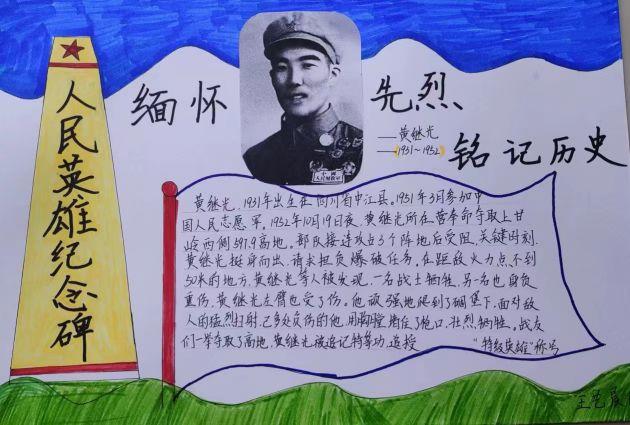 人民英雄纪念碑
缅怀
先烈
——黄继光
——(1931~1952)
铭记历史
中国
人民解放军
黄继光,1931年出生在四川省中江县。1951年3月参加中
国人民志愿军。1952年10月19日夜,黄继光所在营奉命夺取上甘
岭西侧597.9高地。部队接连攻占3个阵地后受阻,关键时刻,
黄继光挺身而出,请求担负爆破任务。在距敌火力点不到
50米的地方,黄继光等人被发现,一名战士牺牲,另一名也身负
重伤,黄继光左臂也受了伤。他顽强地爬到了碉堡下,面对敌
人的猛烈扫射,已多处负伤的他,用胸膛堵住了枪口,壮烈牺牲。战友
们一举夺取了高地,黄继光被追记特等功,追授
"特级英雄"称号